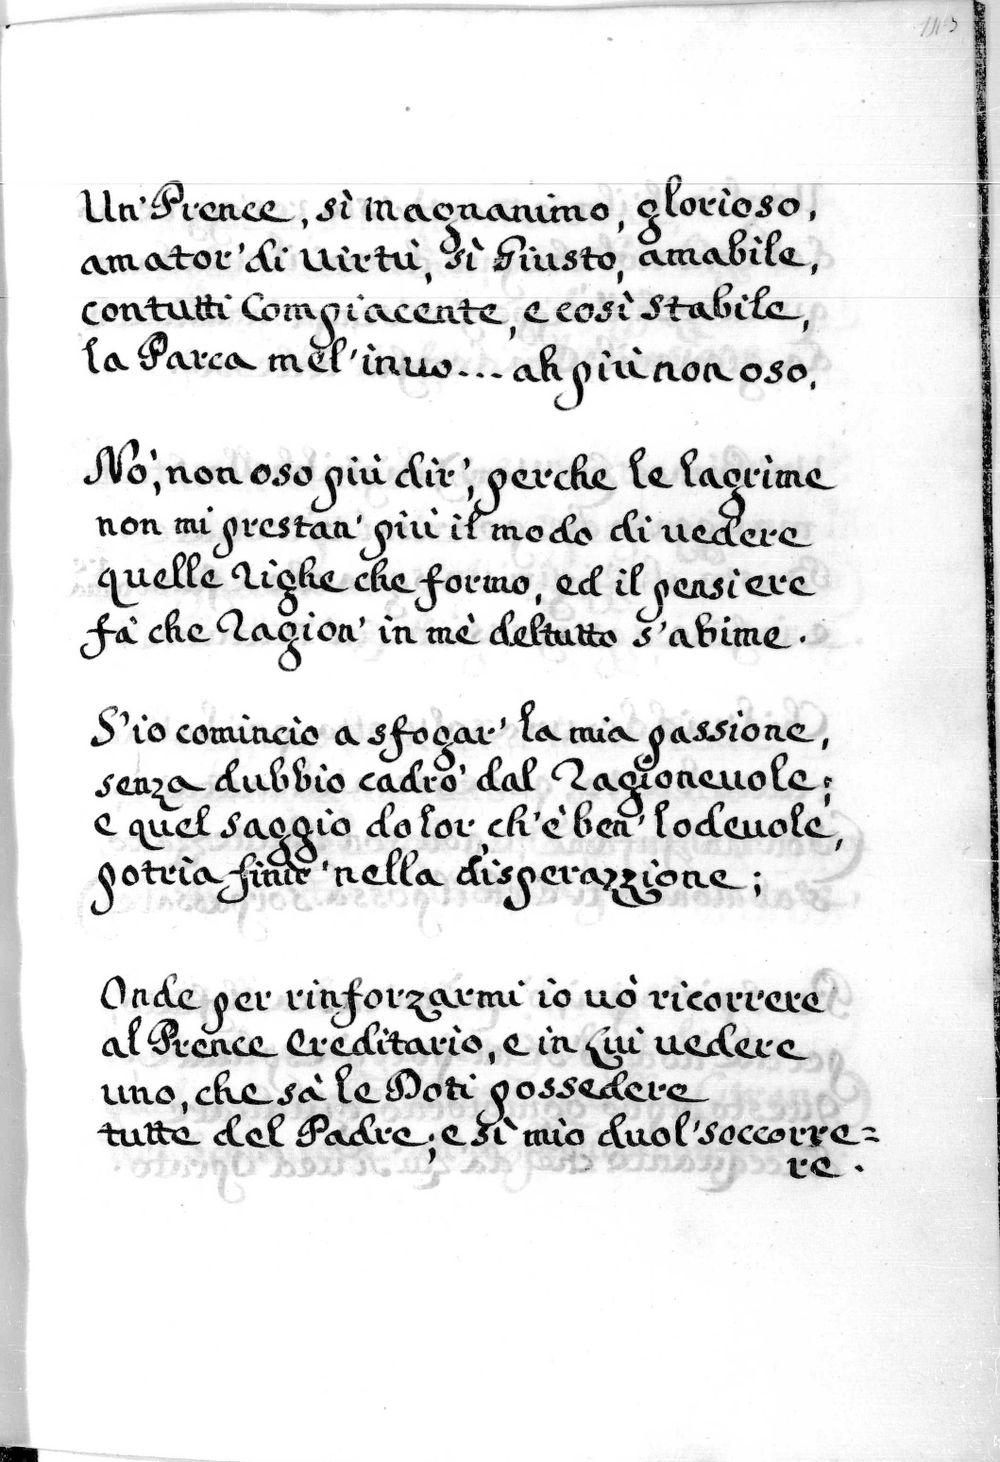 Un' Prence, sì magnanimo, glorioso,
amator' di uirtù, sì Giusto, amabile,
contutti Compiacente, e così stabile,
la Parca mel' inuo... ah più non oso.
Nò, non oso più dir', perche le lagrime
non mi prestan' più il modo di uedere
quelle righe che formo, ed il pensiere
fà che ragion' in mè deltutto s'abime.
S'io comincio a sfogar' la mia passione,
senza dubbio cadrò dal ragioneuole;
e quel saggio dolor, ch'è ben' lodeuole,
potria finir' nella disperazzione;
Onde per rinforzarmi io uò ricorrere
al Prence Ereditario, e in Lui uedere
uno, che sà le Doti possedere
tutte del Padre; e sì mio duol' soccorre=
re.